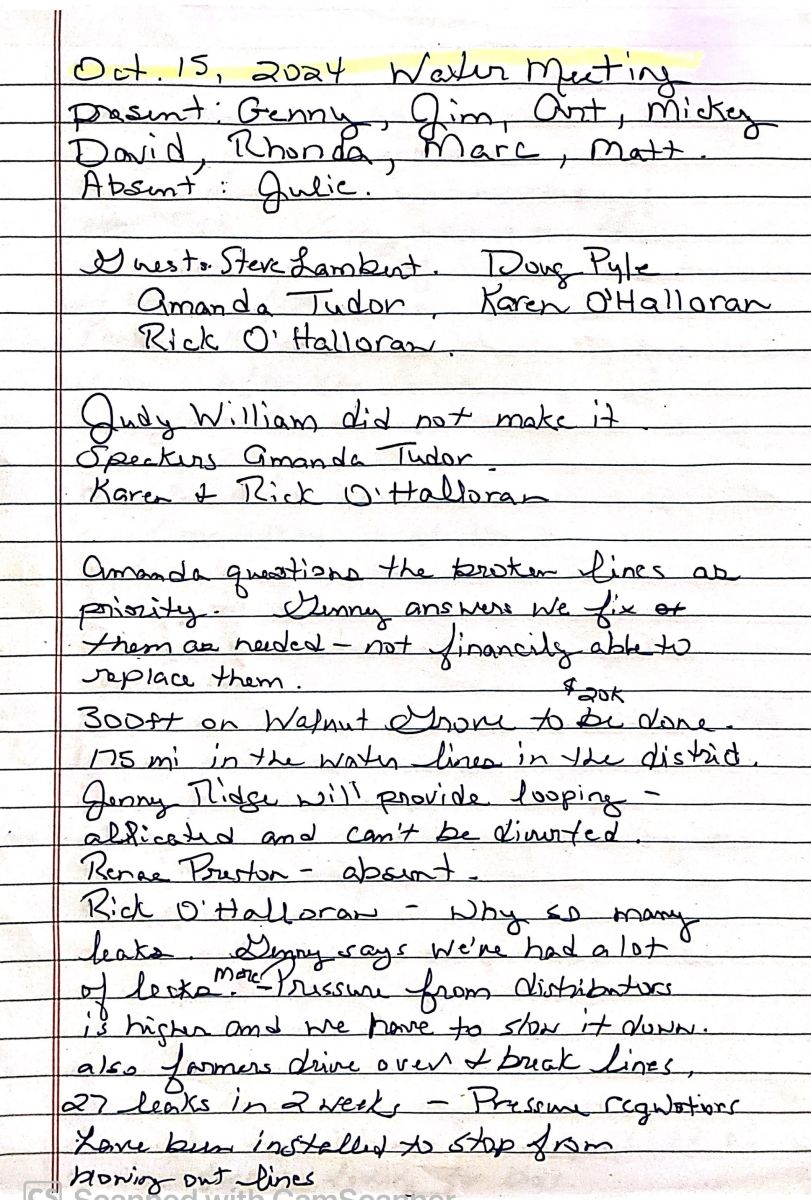 Oct. 15, 2024 Water Meeting
present: Genny, Jim, Art, Mickey
David, Rhonda, Marc, Matt.
Absent: Julie.
Guests. Steve Lambert. Doug Pyle
Amanda Tudor, Karen O'Halloran
Rick O'Halloran.
Judy William did not make it.
Speakers Amanda Tudor.
Karen & Rick O'Halloran
Amanda questions the broken lines as
priority. Genny answers we fix
them as needed - not financily able to
replace them.
$20K
300ft on Walnut Grove to be done.
175 mi in the water lines in the district.
Jenny Ridge will provide looping -
allicated and can't be diverted.
Renae Preston - absent.
Rick O'Halloran - Why so many
leaks. Genny says we've had a lot
of leaks. More - Pressure from distributors
is higher and we have to slow it down.
also farmers drive over & break lines,
27 leaks in 2 weeks - Pressure regulators
have been installed to stop from
blowing out lines
CS Scanned with CamScanner